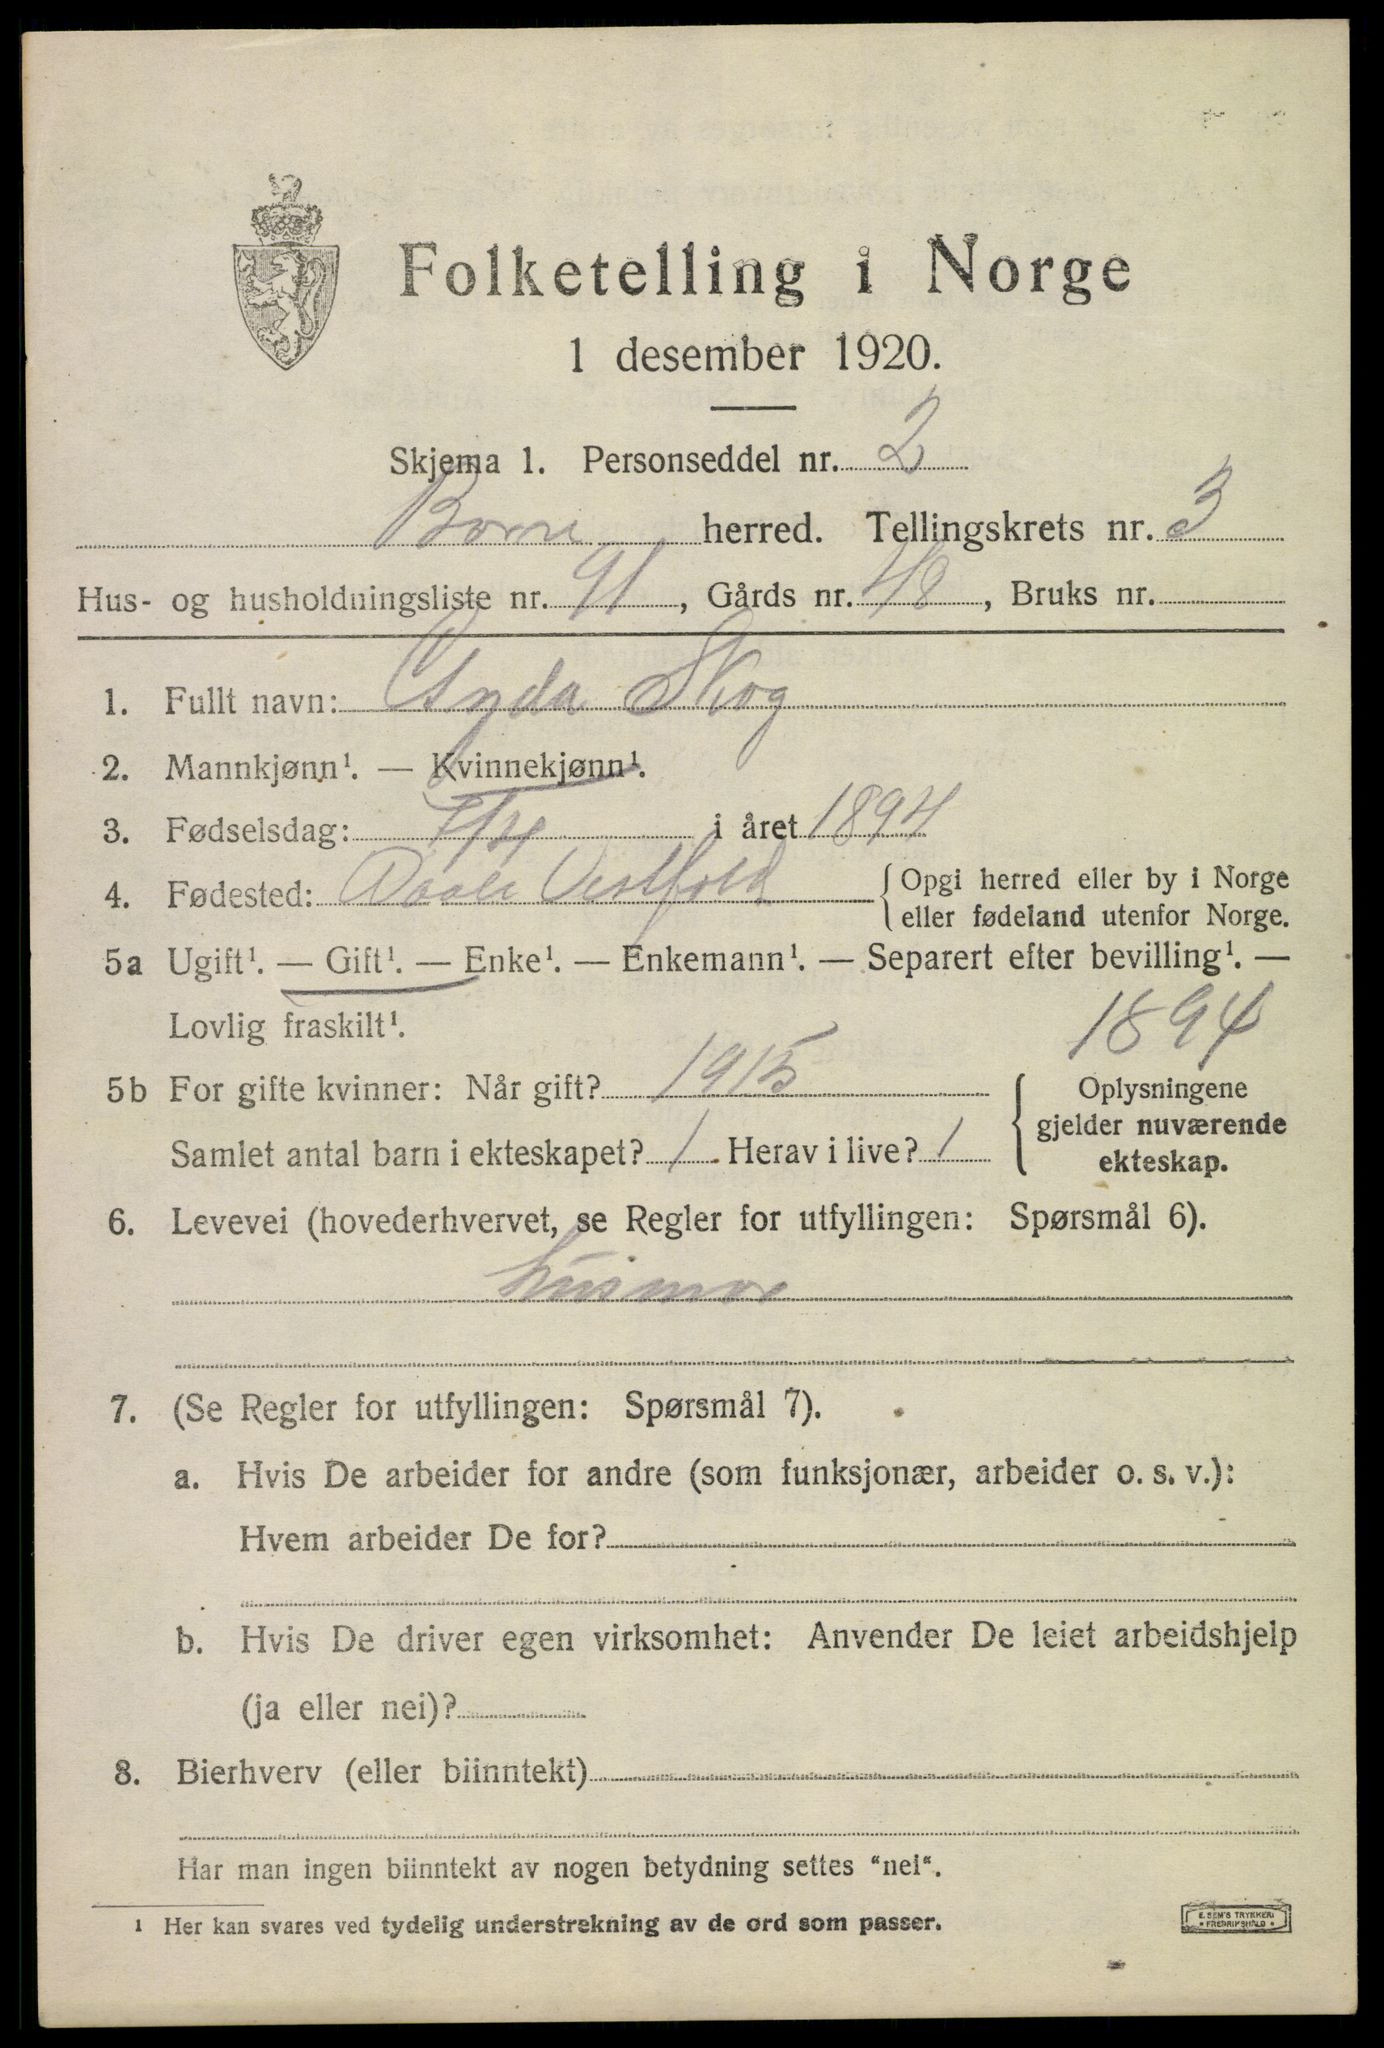 Folketelling i Norge
1 desember 1920.
Skjema 1. Personseddel nr. 2
Borre herred. Tellingskrets nr. 3
Hus- og husholdningsliste nr. 91, Gårds nr. 48, Bruks nr.
1. Fullt navn: Gyda Skog
2. Mannkjønn¹. — Kvinnekjønn¹.
3. Fødselsdag: 7/4 i året 1894
4. Fødested: Vestfold {Opgi herred eller by i Norge
eller fødeland utenfor Norge.
5a Ugift¹. — Gift¹. — Enke¹. — Enkemann¹. — Separert efter bevilling¹. —
Lovlig fraskilt¹.
1894
5b For gifte kvinner: Når gift? 1915
Samlet antal barn i ekteskapet? 1. Herav i live? 1
Oplysningene
gjelder nuværende
ekteskap.
6. Levevei (hovederhvervet, se Regler for utfyllingen: Spørsmål 6).
husmor
7. (Se Regler for utfyllingen: Spørsmål 7).
a. Hvis De arbeider for andre (som funksjonær, arbeider o. s. v.):
Hvem arbeider De for?
b. Hvis De driver egen virksomhet: Anvender De leiet arbeidshjelp
(ja eller nei)?
8. Bierhverv (eller biinntekt)
Har man ingen biinntekt av nogen betydning settes "nei".
1 Her kan svares ved tydelig understrekning av de ord som passer.
E. SEM'S TRYKKERI
• FREDRIKSHALD •